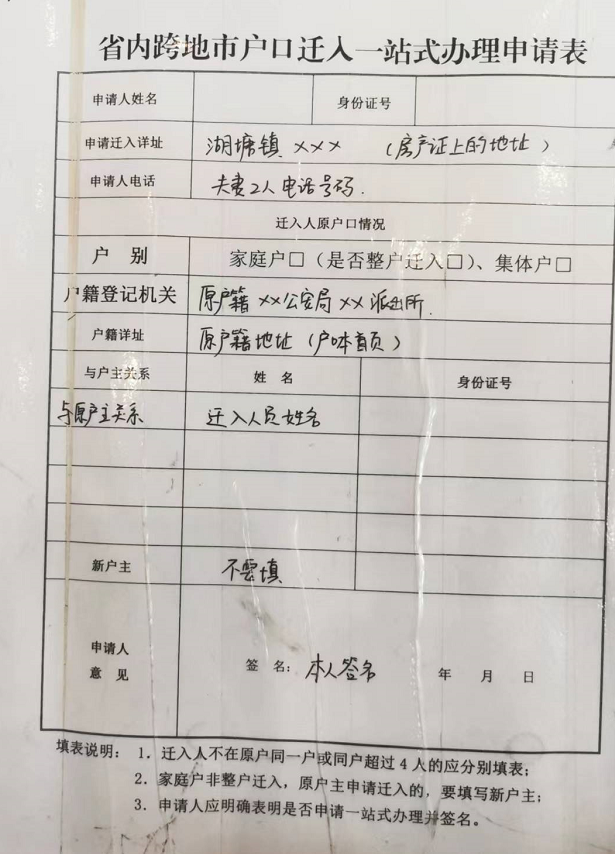 省内跨地市户口迁入一站式办理申请表
申请人姓名 身份证号
申请迁入详址 湖塘镇 ××× (房产证上的地址)
申请人电话 夫妻2人电话号码.
迁入人原户口情况
户 别 家庭户□(是否整户迁入□)、集体户□
户籍登记机关 原户籍××公安局××派出所.
户籍详址 原户籍地址(户口本首页)
与户主关系 姓 名 身份证号
与原户主关系 迁入人员姓名
新户主 不需填
申请人
意 见 签 名: 本人签名 年 月 日
填表说明: 1. 迁入人不在原户同一户或同户超过4人的应分别填表;
2. 家庭户非整户迁入,原户主申请迁入的,要填写新户主;
3. 申请人应明确表明是否申请一站式办理并签名。